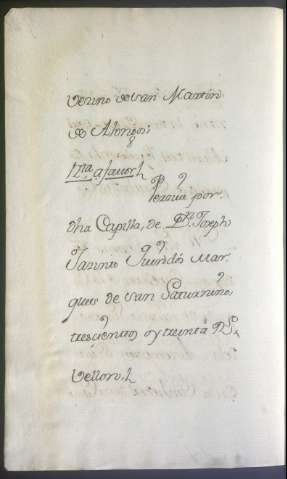 vezino de san Martin
de Alonqꝫ
Itta a favor
Perciue por
dha Capilla, de Dn Joseph
Jazinto Quindós Mar
ques de san Saturnino,
trescientos y treinta Rs
vellon,